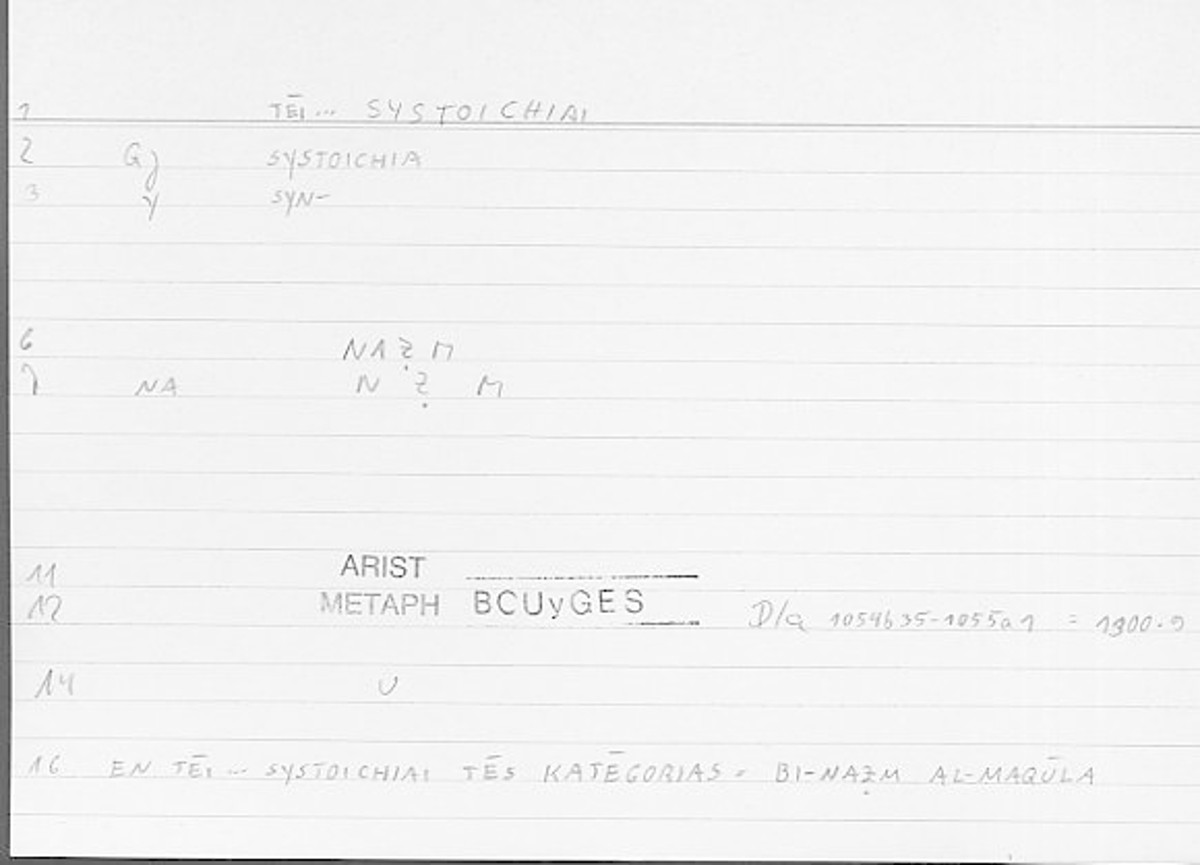 1 TĒI... SYSTOICHIAI
2 Gj SYSTOICHIA
3 γ SYN-
6 NAẒM
7 NA N Ẓ M
11 ARIST
12 METAPH BCUyGES D/a 1054b35-1055a1 = 1300.9
14 U
16 EN TĒI... SYSTOICHIAI TĒS KATĒGORIAS = BI-NAẒM AL-MAQŪLA